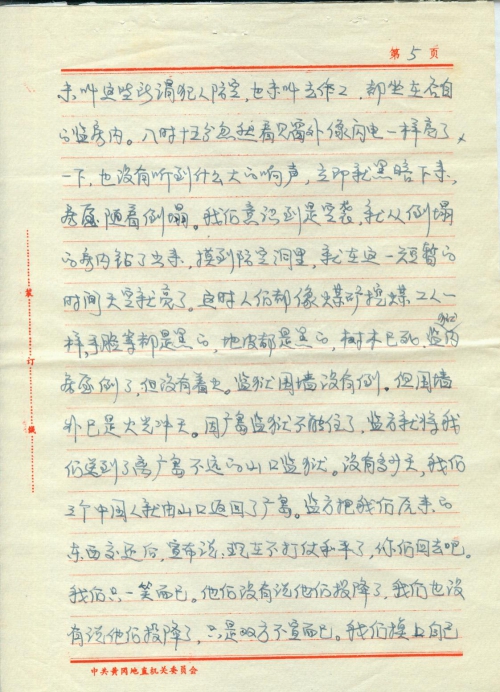 第 5 页
未叫这些所谓犯人防空,也未叫去作工,都坐在各自
的监房内。八时十五分忽然看见窗外像闪电一样亮了
一下,也没有听到什么大的响声,立即就黑暗下来,
房屋随着倒塌。我们意识到是空袭,就从倒塌
的房内钻了出来,摸到防空洞里,就在这一短暂的
时间天空就亮了。这时人们都像煤矿挖煤,工人一
样,手脸等都是黑的,地皮都是黑的,树木已死,监内
房屋倒了,但没有着火。监狱围墙没有倒。但围墙
外已是火光冲天。因广岛监狱不能住了,监方就将我
们送到了离广岛不远的山口监狱。没有多少天,我们
3个中国人就由山口返回了广岛。监方把我们原来的
东西交还后,宣布说:现在不打仗和平了,你们回去吧。
我们只一笑而已。他们没有说他们投降了,我们也没
有说他们投降了,只是双方不宣而已。我们换上自己
装
订
线
中共黄冈地直机关委员会